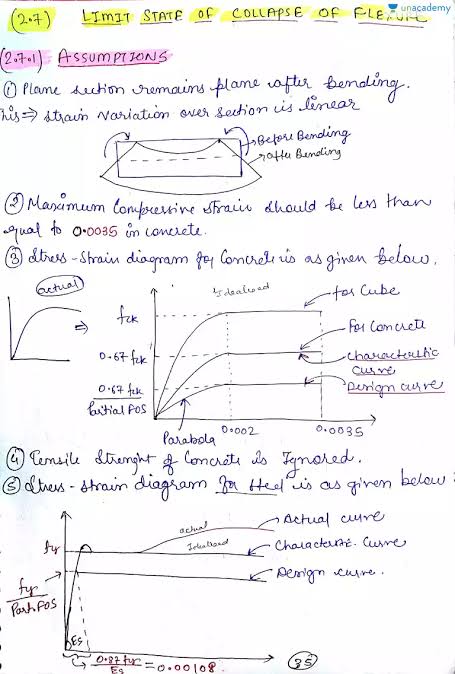 unacademy
(2.7) LIMIT STATE OF COLLAPSE OF FLEXURE
(2.7.1) ASSUMPTIONS
① Plane section remains plane after bending.
This ⇒ strain variation over section is linear
Before Bending
After Bending
② Maximum Compressive strain should be less than
equal to 0.0035 in concrete.
③ Stress-strain diagram for Concrete is as given below.
actual
Idealised
for Cube
fck
For Concrete
0.67 fck
characteristic
curve
0.67 fck
Partial FOS
Design curve
Parabola
0.002
0.0035
④ Tensile Strenght of Concrete is Ignored.
⑤ Stress-strain diagram for steel is as given below:
actual
Actual curve
Idealised
fy
Characteristic Curve
fy
Part. FOS
Design curve.
Es
0.87 fy
Es
= 0.00108
35